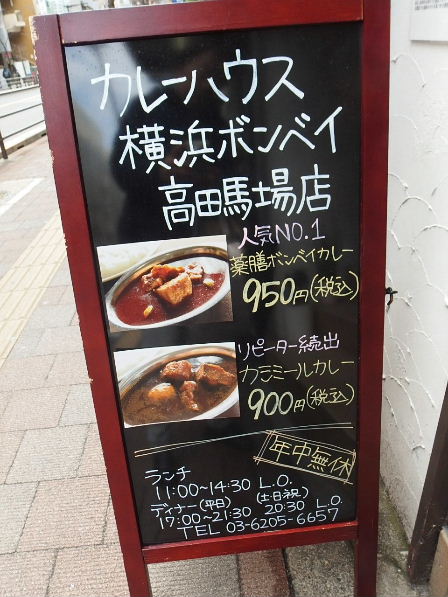 カレーハウス
横浜ボンベイ
高田馬場店
人気NO.1
薬膳ボンベイカレー
950円(税込)
リピーター続出
カシミールカレー
900円(税込)
年中無休
ランチ
11:00~14:30 L.O.
ディナー(平日) (土日祝)
17:00~21:30 20:30 L.O.
TEL 03-6205-6657